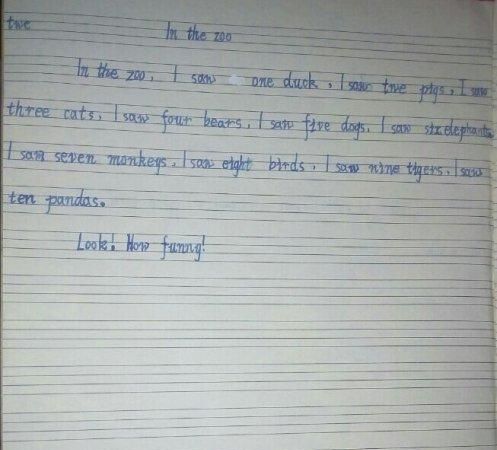 twe In the zoo
In the zoo, I saw one duck, I saw twe pigs, I saw
three cats, I saw four bears, I saw five dogs, I saw six elephants,
I sam seven monkeys, I saw eight birds, I saw nine tigers, I saw
ten pandas。
Look! How funny!